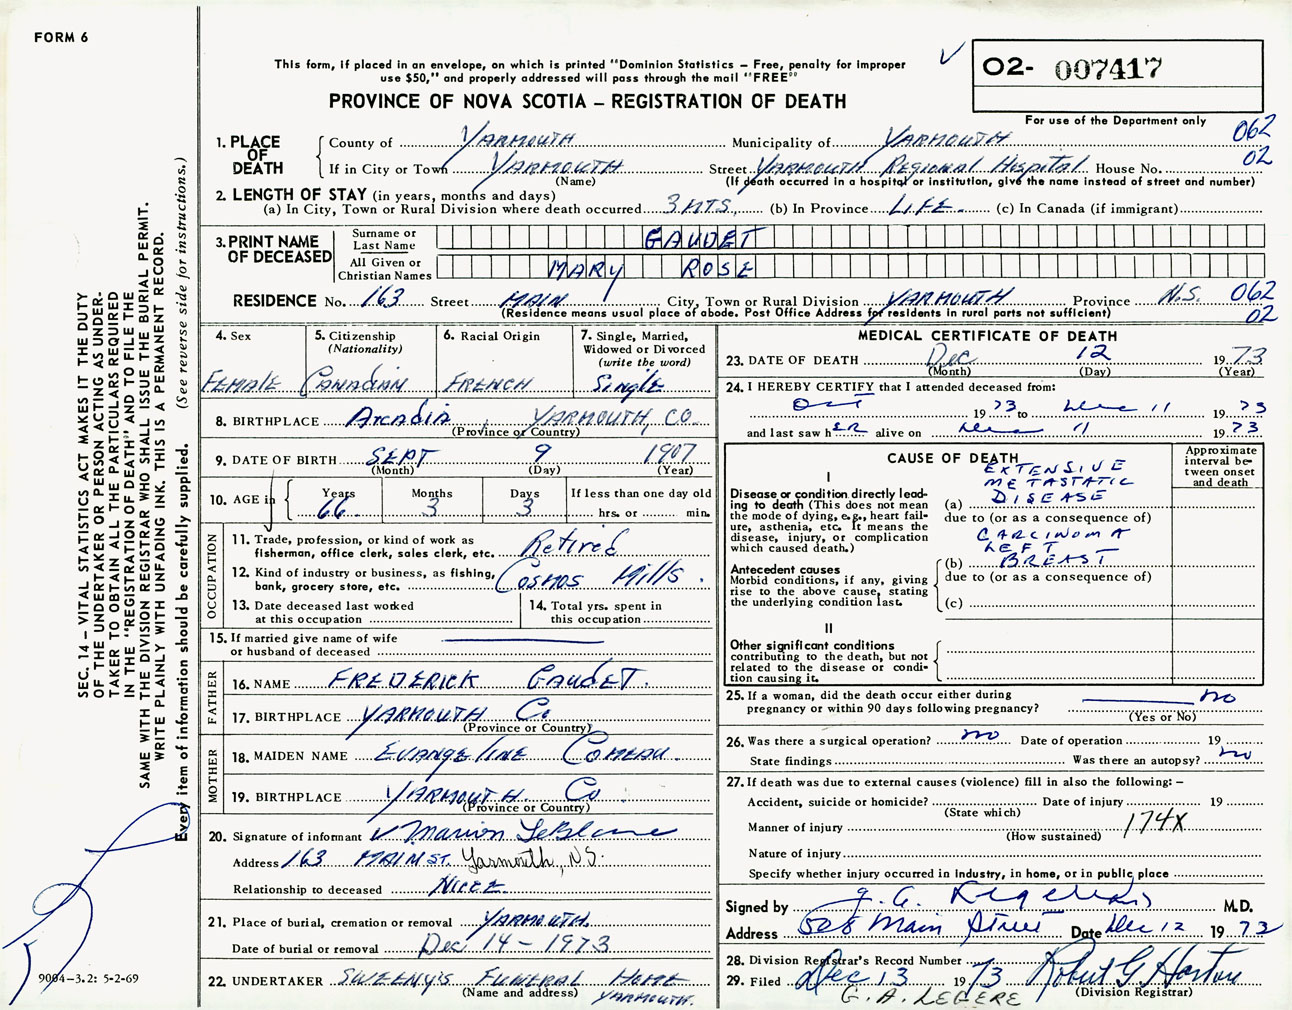 FORM 6
This form, if placed in an envelope, on which is printed "Dominion Statistics – Free, penalty for improper
use $50," and properly addressed will pass through the mail "FREE"
O2- 007417
PROVINCE OF NOVA SCOTIA – REGISTRATION OF DEATH
For use of the Department only
1. PLACE OF DEATH
County of YARMOUTH Municipality of YARMOUTH 062
If in City or Town YARMOUTH Street YARMOUTH REGIONAL HOSPITAL House No. 02
(Name) (If death occurred in a hospital or institution, give the name instead of street and number)
2. LENGTH OF STAY (in years, months and days)
(a) In City, Town or Rural Division where death occurred 3 NTS. (b) In Province LIFE. (c) In Canada (if immigrant)
3. PRINT NAME OF DECEASED
Surname or Last Name GAUDET
All Given or Christian Names MARY ROSE
RESIDENCE No. 163 Street MAIN City, Town or Rural Division YARMOUTH Province N.S. 062
(Residence means usual place of abode. Post Office Address for residents in rural parts not sufficient) 02
4. Sex
FEMALE
5. Citizenship
(Nationality)
CANADIAN
6. Racial Origin
FRENCH
7. Single, Married,
Widowed or Divorced
(write the word)
Single
8. BIRTHPLACE Arcadia YARMOUTH, CO
(Province or Country)
9. DATE OF BIRTH SEPT 9 1907
(Month) (Day) (Year)
10. AGE in
Years Months Days If less than one day old
66 3 3 hrs. or min.
OCCUPATION
11. Trade, profession, or kind of work as
fisherman, office clerk, sales clerk, etc. Retired
12. Kind of industry or business, as fishing,
bank, grocery store, etc. Cosmos Mills.
13. Date deceased last worked
at this occupation
14. Total yrs. spent in
this occupation
15. If married give name of wife
or husband of deceased
FATHER
16. NAME FREDERICK GAUDET.
17. BIRTHPLACE YARMOUTH Co
(Province or Country)
MOTHER
18. MAIDEN NAME EVANGELINE COMEAU.
19. BIRTHPLACE YARMOUTH Co.
(Province or Country)
20. Signature of informant Marion LeBlanc
Address 163 MAIN ST. Yarmouth, N.S.
Relationship to deceased NIECE
21. Place of burial, cremation or removal YARMOUTH.
Date of burial or removal Dec 14 – 1973
22. UNDERTAKER SWEENY'S FUNERAL HOME
(Name and address) YARMOUTH.
MEDICAL CERTIFICATE OF DEATH
23. DATE OF DEATH Dec 12 1973
(Month) (Day) (Year)
24. I HEREBY CERTIFY that I attended deceased from:
Oct 1973 to Dec 11 1973
and last saw hER alive on Dec 11 1973
CAUSE OF DEATH
Approximate
interval be-
tween onset
and death
I
Disease or condition directly lead-
ing to death (This does not mean
the mode of dying, e.g., heart fail-
ure, asthenia, etc. It means the
disease, injury, or complication
which caused death.)
EXTENSIVE
METASTATIC
(a) DISEASE
due to (or as a consequence of)
CARCINOMA
LEFT
(b) BREAST
due to (or as a consequence of)
(c)
Antecedent causes
Morbid conditions, if any, giving
rise to the above cause, stating
the underlying condition last.
II
Other significant conditions
contributing to the death, but not
related to the disease or condi-
tion causing it.
25. If a woman, did the death occur either during
pregnancy or within 90 days following pregnancy? no
(Yes or No)
26. Was there a surgical operation? no Date of operation 19
State findings Was there an autopsy? no
27. If death was due to external causes (violence) fill in also the following: –
Accident, suicide or homicide? Date of injury 19
(State which)
Manner of injury 174X
(How sustained)
Nature of injury
Specify whether injury occurred in industry, in home, or in public place
Signed by M.D.
Address 508 Main Street Date Dec 12 1973
28. Division Registrar's Record Number
29. Filed Dec 13 1973 Robert G Horton
(Division Registrar)
G. A. LEGERE
SEC. 14 – VITAL STATISTICS ACT MAKES IT THE DUTY
OF THE UNDERTAKER OR PERSON ACTING AS UNDER-
TAKER TO OBTAIN ALL THE PARTICULARS REQUIRED
IN THE "REGISTRATION OF DEATH" AND TO FILE THE
SAME WITH THE DIVISION REGISTRAR WHO SHALL ISSUE THE BURIAL PERMIT.
WRITE PLAINLY WITH UNFADING INK. THIS IS A PERMANENT RECORD.
Every item of information should be carefully supplied. (See reverse side for instructions.)
9004–3.2: 5-2-69